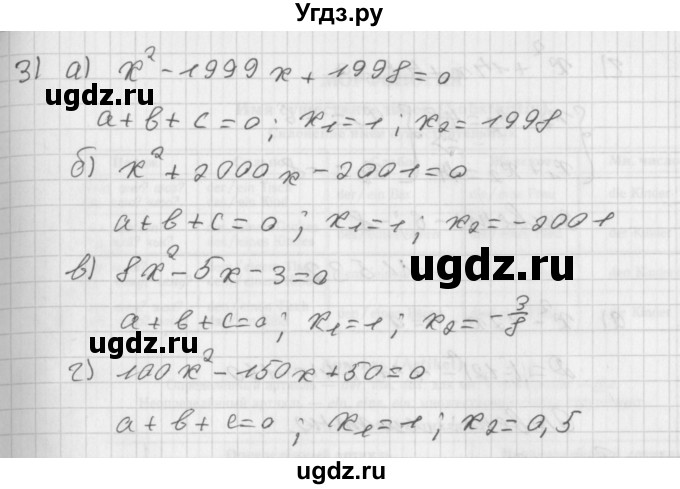 Угдз.ру
3) а) x² - 1999x + 1998 = 0
ugdz.ru ugdz.ru
a + b + c = 0; x₁ = 1; x₂ = 1998
б) x² + 2000x - 2001 = 0
a + b + c = 0; x₁ = 1; x₂ = -2001
ugdz.ru
в) 8x² - 5x - 3 = 0
a + b + c = 0; x₁ = 1; x₂ = -3/8
ugdz.ru ugdz.ru
г) 100x² - 150x + 50 = 0
a + b + c = 0; x₁ = 1; x₂ = 0,5
ugdz.ru